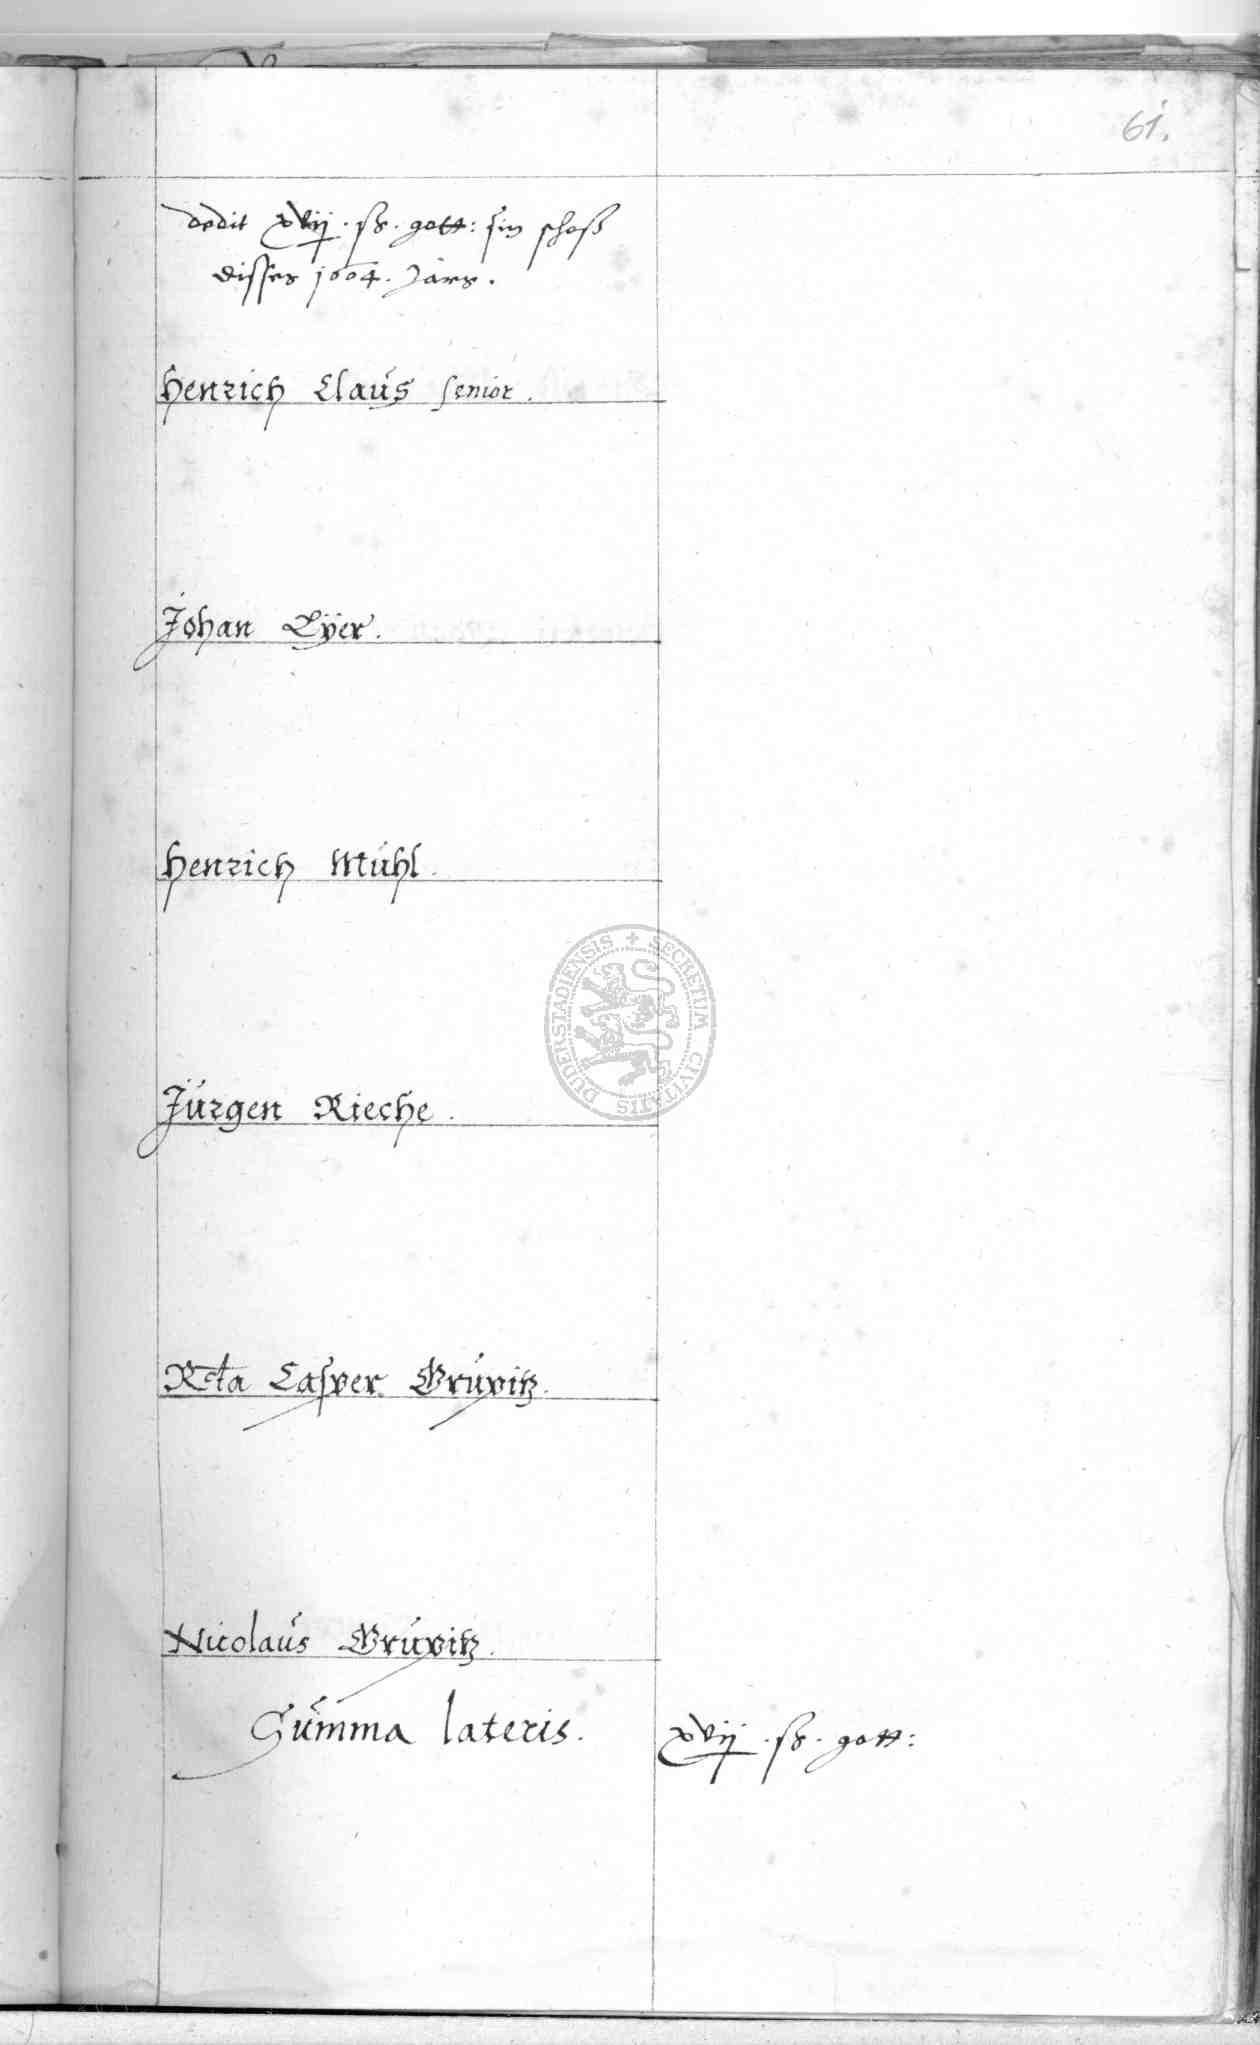 61.
dedit xvij. ß. gott: sin schoß
disses 1604. Jars.
Henrich Claus senior.
Johan Eÿer.
Henrich Mühl.
DUDERSTADIENSIS + SECRETUM CIVITATIS
Jürgen Rieche.
Rcta Casper Grüvitz.
Nicolaus Grüvitz.
Summa lateris. xvij. ß. gott: